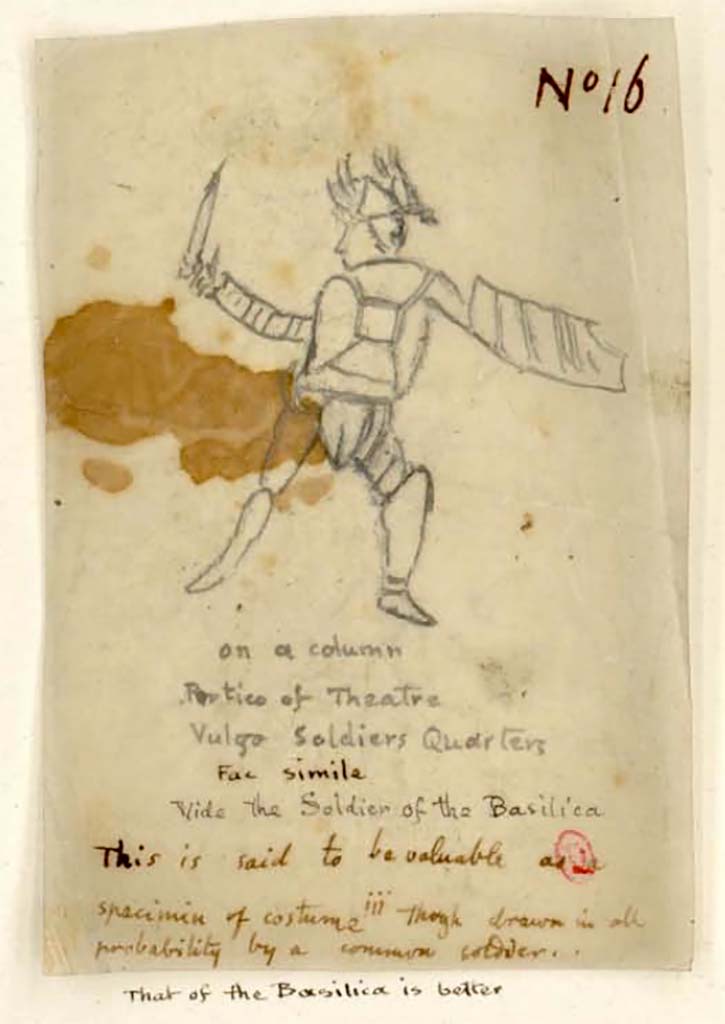 No 16
on a column
Portico of Theatre
Vulgo Soldiers Quarters
Fac simile
Vide the Soldier of the Basilica
This is said to be valuable as a
specimin of costume iii Thogh drawn in all
probability by a common soldier..
That of the Basilica is better